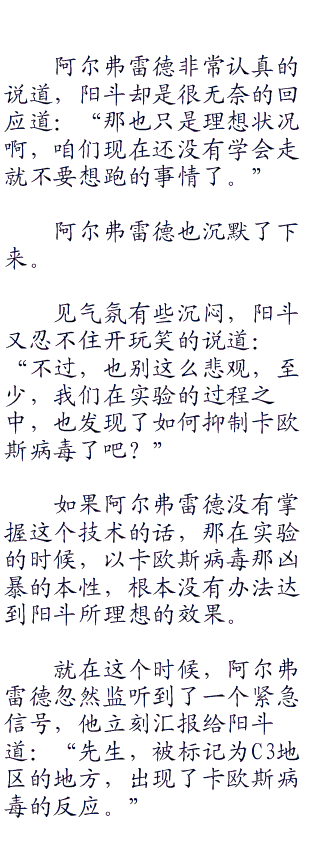 阿尔弗雷德非常认真的
说道，阳斗却是很无奈的回
应道：“那也只是理想状况
啊，咱们现在还没有学会走
就不要想跑的事情了。”
阿尔弗雷德也沉默了下
来。
见气氛有些沉闷，阳斗
又忍不住开玩笑的说道：
“不过，也别这么悲观，至
少，我们在实验的过程之
中，也发现了如何抑制卡欧
斯病毒了吧？”
如果阿尔弗雷德没有掌
握这个技术的话，那在实验
的时候，以卡欧斯病毒那凶
暴的本性，根本没有办法达
到阳斗所理想的效果。
就在这个时候，阿尔弗
雷德忽然监听到了一个紧急
信号，他立刻汇报给阳斗
道：“先生，被标记为C3地
区的地方，出现了卡欧斯病
毒的反应。”